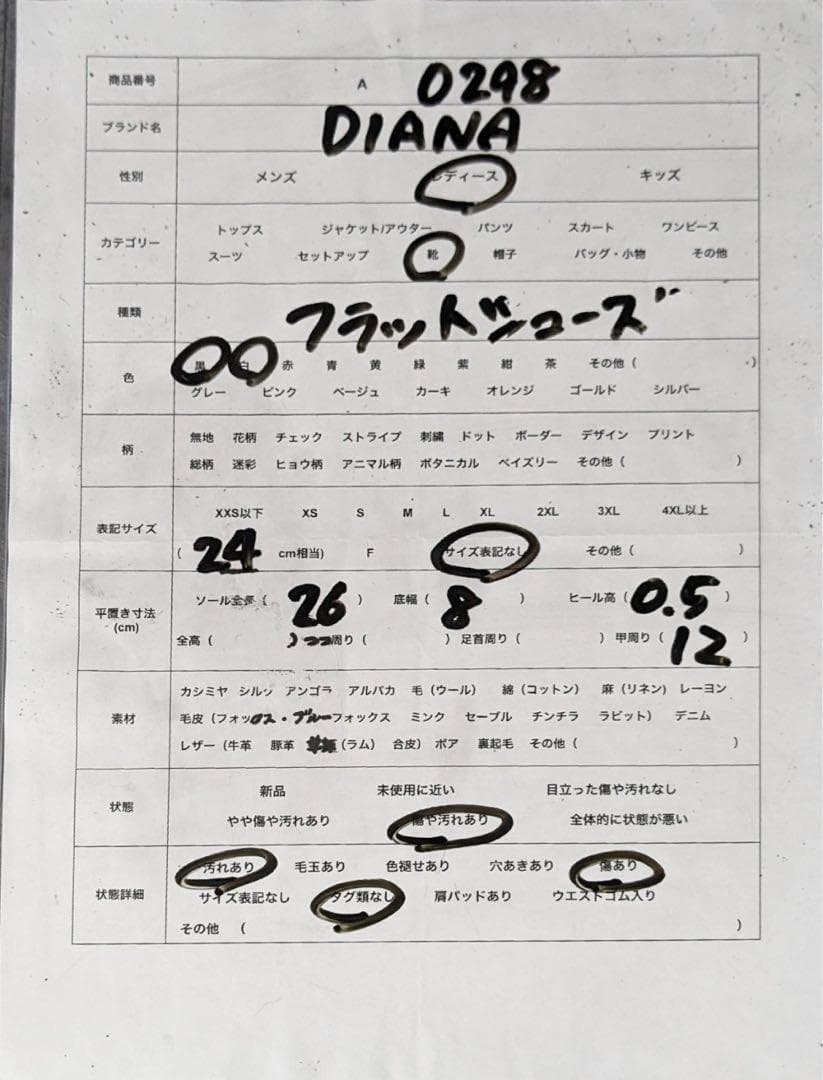 商品番号 A 0298
ブランド名 DIANA
性別 メンズ レディース キッズ
カテゴリー
トップス ジャケット/アウター パンツ スカート ワンピース
スーツ セットアップ 靴 帽子 バッグ・小物 その他
種類 フラットシューズ
色
黒 白 赤 青 黄 緑 紫 紺 茶 その他 ( )
グレー ピンク ベージュ カーキ オレンジ ゴールド シルバー
柄
無地 花柄 チェック ストライプ 刺繍 ドット ボーダー デザイン プリント
総柄 迷彩 ヒョウ柄 アニマル柄 ボタニカル ペイズリー その他 ( )
表記サイズ
XXS以下 XS S M L XL 2XL 3XL 4XL以上
( 24 cm相当) F サイズ表記なし その他 ( )
平置き寸法
(cm)
ソール全長 ( 26 ) 底幅 ( 8 ) ヒール高 ( 0.5 )
全高 ( ) 周り ( ) 足首周り ( ) 甲周り ( 12 )
素材
カシミヤ シルク アンゴラ アルパカ 毛 (ウール) 綿 (コットン) 麻 (リネン) レーヨン
毛皮 (フォックス・ブルーフォックス ミンク セーブル チンチラ ラビット) デニム
レザー (牛革 豚革 (ラム) 合皮) ボア 裏起毛 その他 ( )
状態
新品 未使用に近い 目立った傷や汚れなし
やや傷や汚れあり 傷や汚れあり 全体的に状態が悪い
状態詳細
汚れあり 毛玉あり 色褪せあり 穴あきあり 傷あり
サイズ表記なし タグ類なし 肩パッドあり ウエストゴム入り
その他 ( )